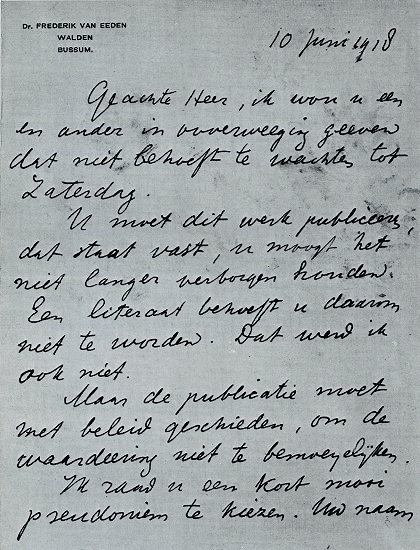 Dr. FREDERIK VAN EEDEN
WALDEN
BUSSUM.
10 Juni 1918
Geachte Heer, ik wou u een
en ander in overweging geeven
dat niet behoeft te wachten tot
Zaterdag.
U moet dit werk publiceeren,
dat staat vast, u moogt het
niet langer verborgen houden.
Een literaat behoeft u daarom
niet te worden. Dat werd ik
ook niet.
Maar de publicatie moet
met beleid geschieden, om de
waardeering niet te bemoeyelijken.
Ik raad u een kort mooi
pseudoniem te kiezen. Uw naam